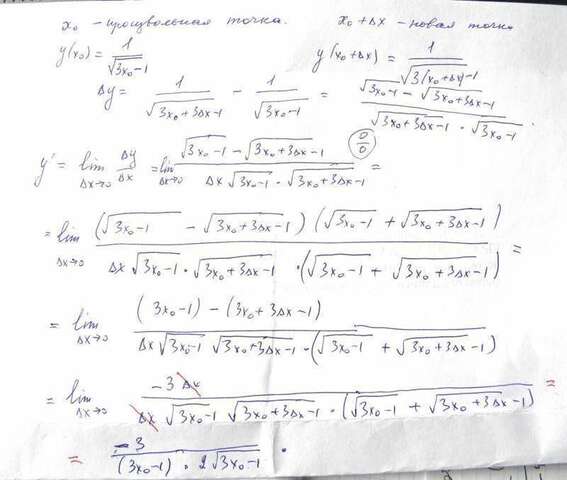 x₀ - произвольная точка. x₀ + Δx - новая точка
y(x₀) = 1/√(3x₀-1) y(x₀+Δx) = 1/√(3(x₀+Δx)-1)
Δy = 1/√(3x₀+3Δx-1) - 1/√(3x₀-1) = (√(3x₀-1) - √(3x₀+3Δx-1))/(√(3x₀+3Δx-1) · √(3x₀-1)).
y' = lim_{Δx→0} Δy/Δx = lim_{Δx→0} (√(3x₀-1) - √(3x₀+3Δx-1))/(Δx √(3x₀-1) · √(3x₀+3Δx-1)) (0/0) =
= lim_{Δx→0} ((√(3x₀-1) - √(3x₀+3Δx-1)) (√(3x₀-1) + √(3x₀+3Δx-1)))/(Δx √(3x₀-1) · √(3x₀+3Δx-1) · (√(3x₀-1) + √(3x₀+3Δx-1))) =
= lim_{Δx→0} ((3x₀-1) - (3x₀+3Δx-1))/(Δx √(3x₀-1) √(3x₀+3Δx-1) · (√(3x₀-1) + √(3x₀+3Δx-1)))
= lim_{Δx→0} (-3Δx)/(Δx √(3x₀-1) √(3x₀+3Δx-1) · (√(3x₀-1) + √(3x₀+3Δx-1))) =
= (-3)/((3x₀-1) · 2√(3x₀-1)).